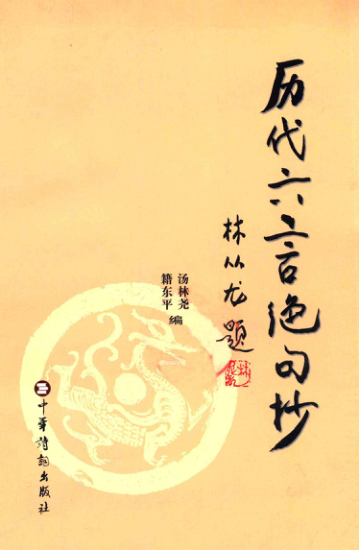 历代六言绝句抄
林从龙题
汤林尧
籍东平
编
中华诗词出版社